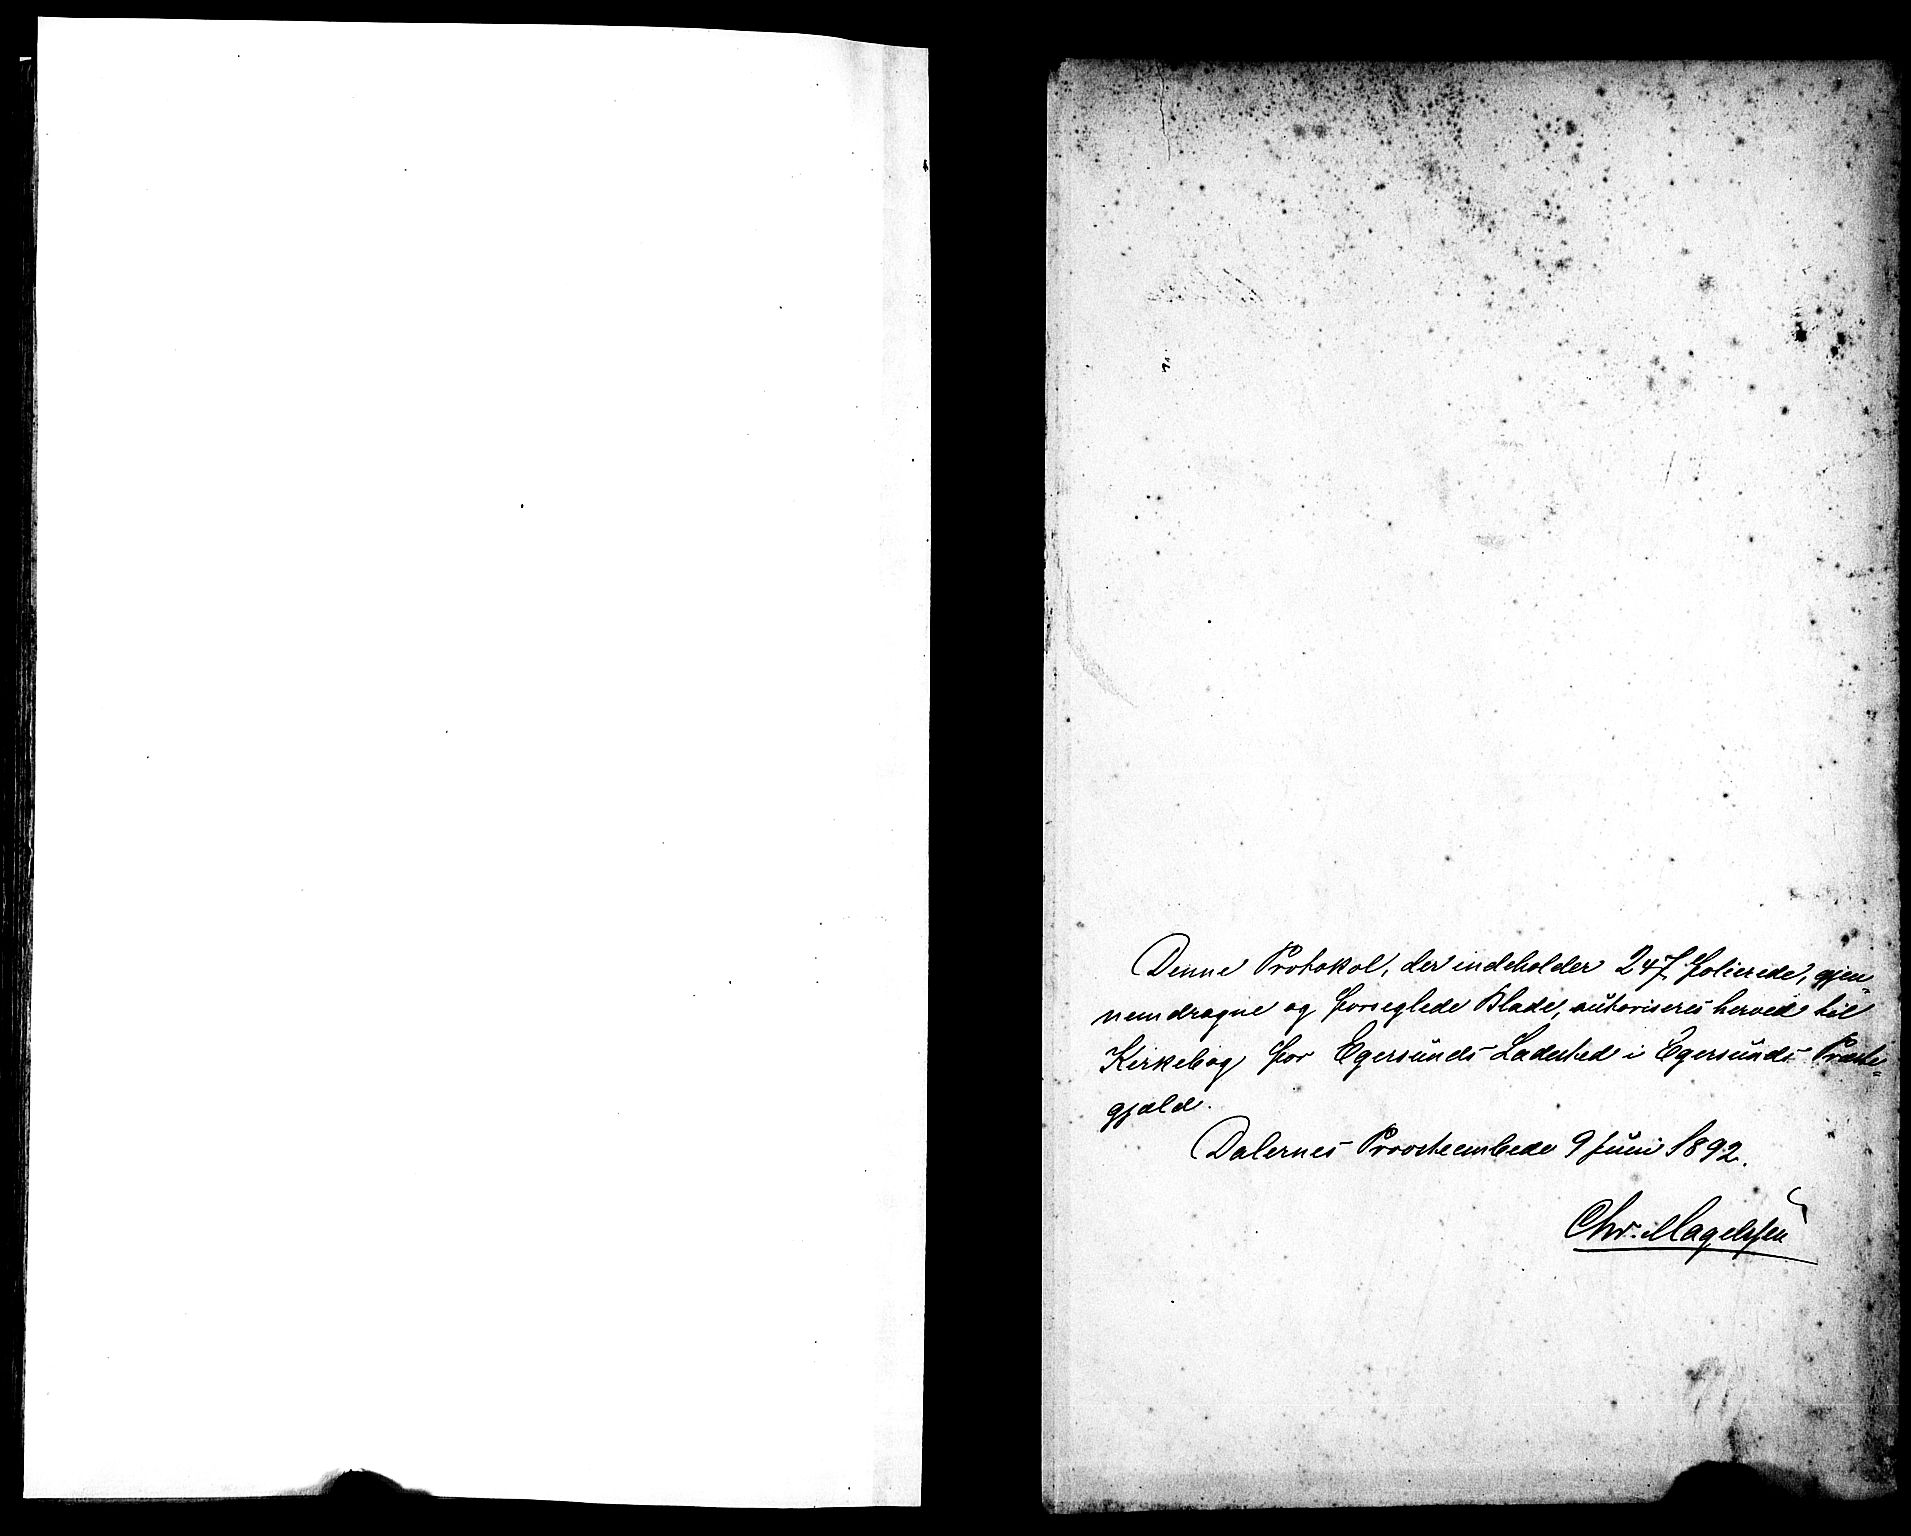 Denne Protokol, der indeholder 247 folierede, gjen-
nemdragne og forseglede Blade, autoriseres herved til
Kirkebog for Egersunds Ladested i Egersunds Præste-
gjæld.
Dalernes Provsteembede 9 Juni 1892.
Chr. Magelssen